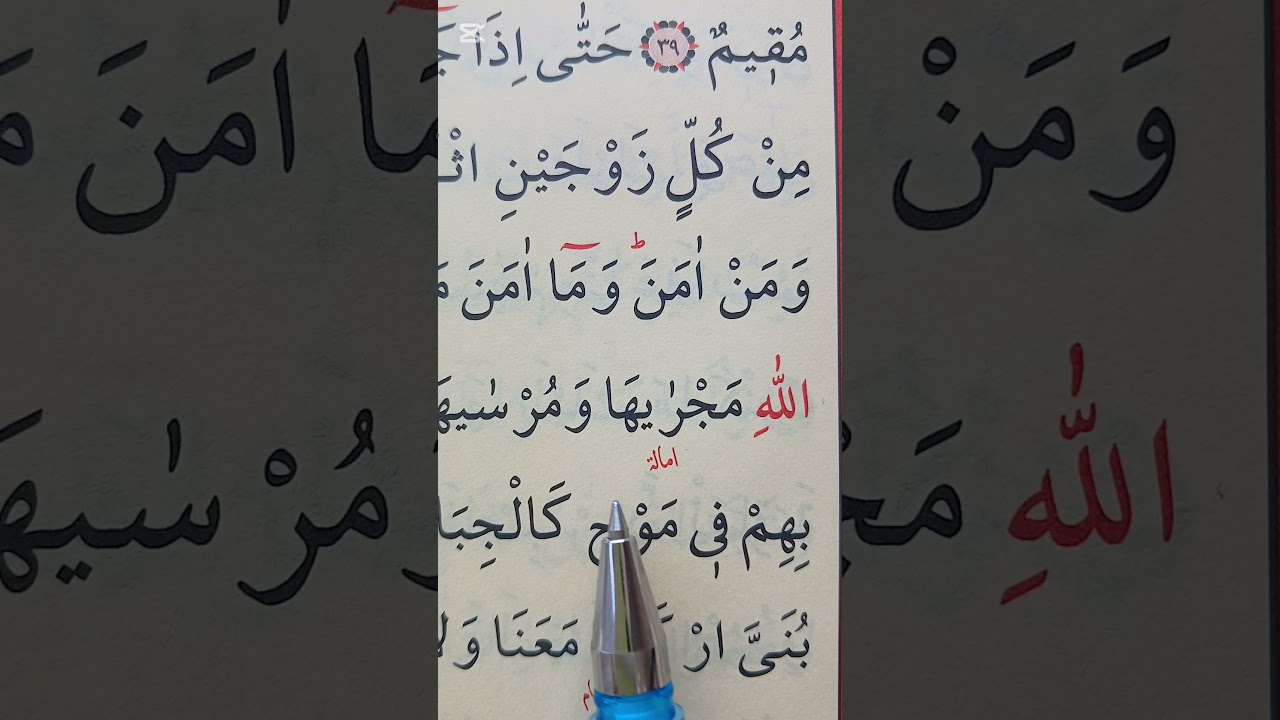 مُقٖيمٌ ﴿٣٩﴾ حَتّٰٓى اِذَا
مِنْ كُلٍّ زَوْجَيْنِ
وَمَنْ اٰمَنَؕ وَمَٓا اٰمَنَ
اللّٰهِ مَجْرٰۭيهَا وَمُرْسٰيهَا
امالة
بِهِمْ فٖي مَوْجٍ كَالْجِبَا
بُنَيَّ مَعَنَا وَلَا